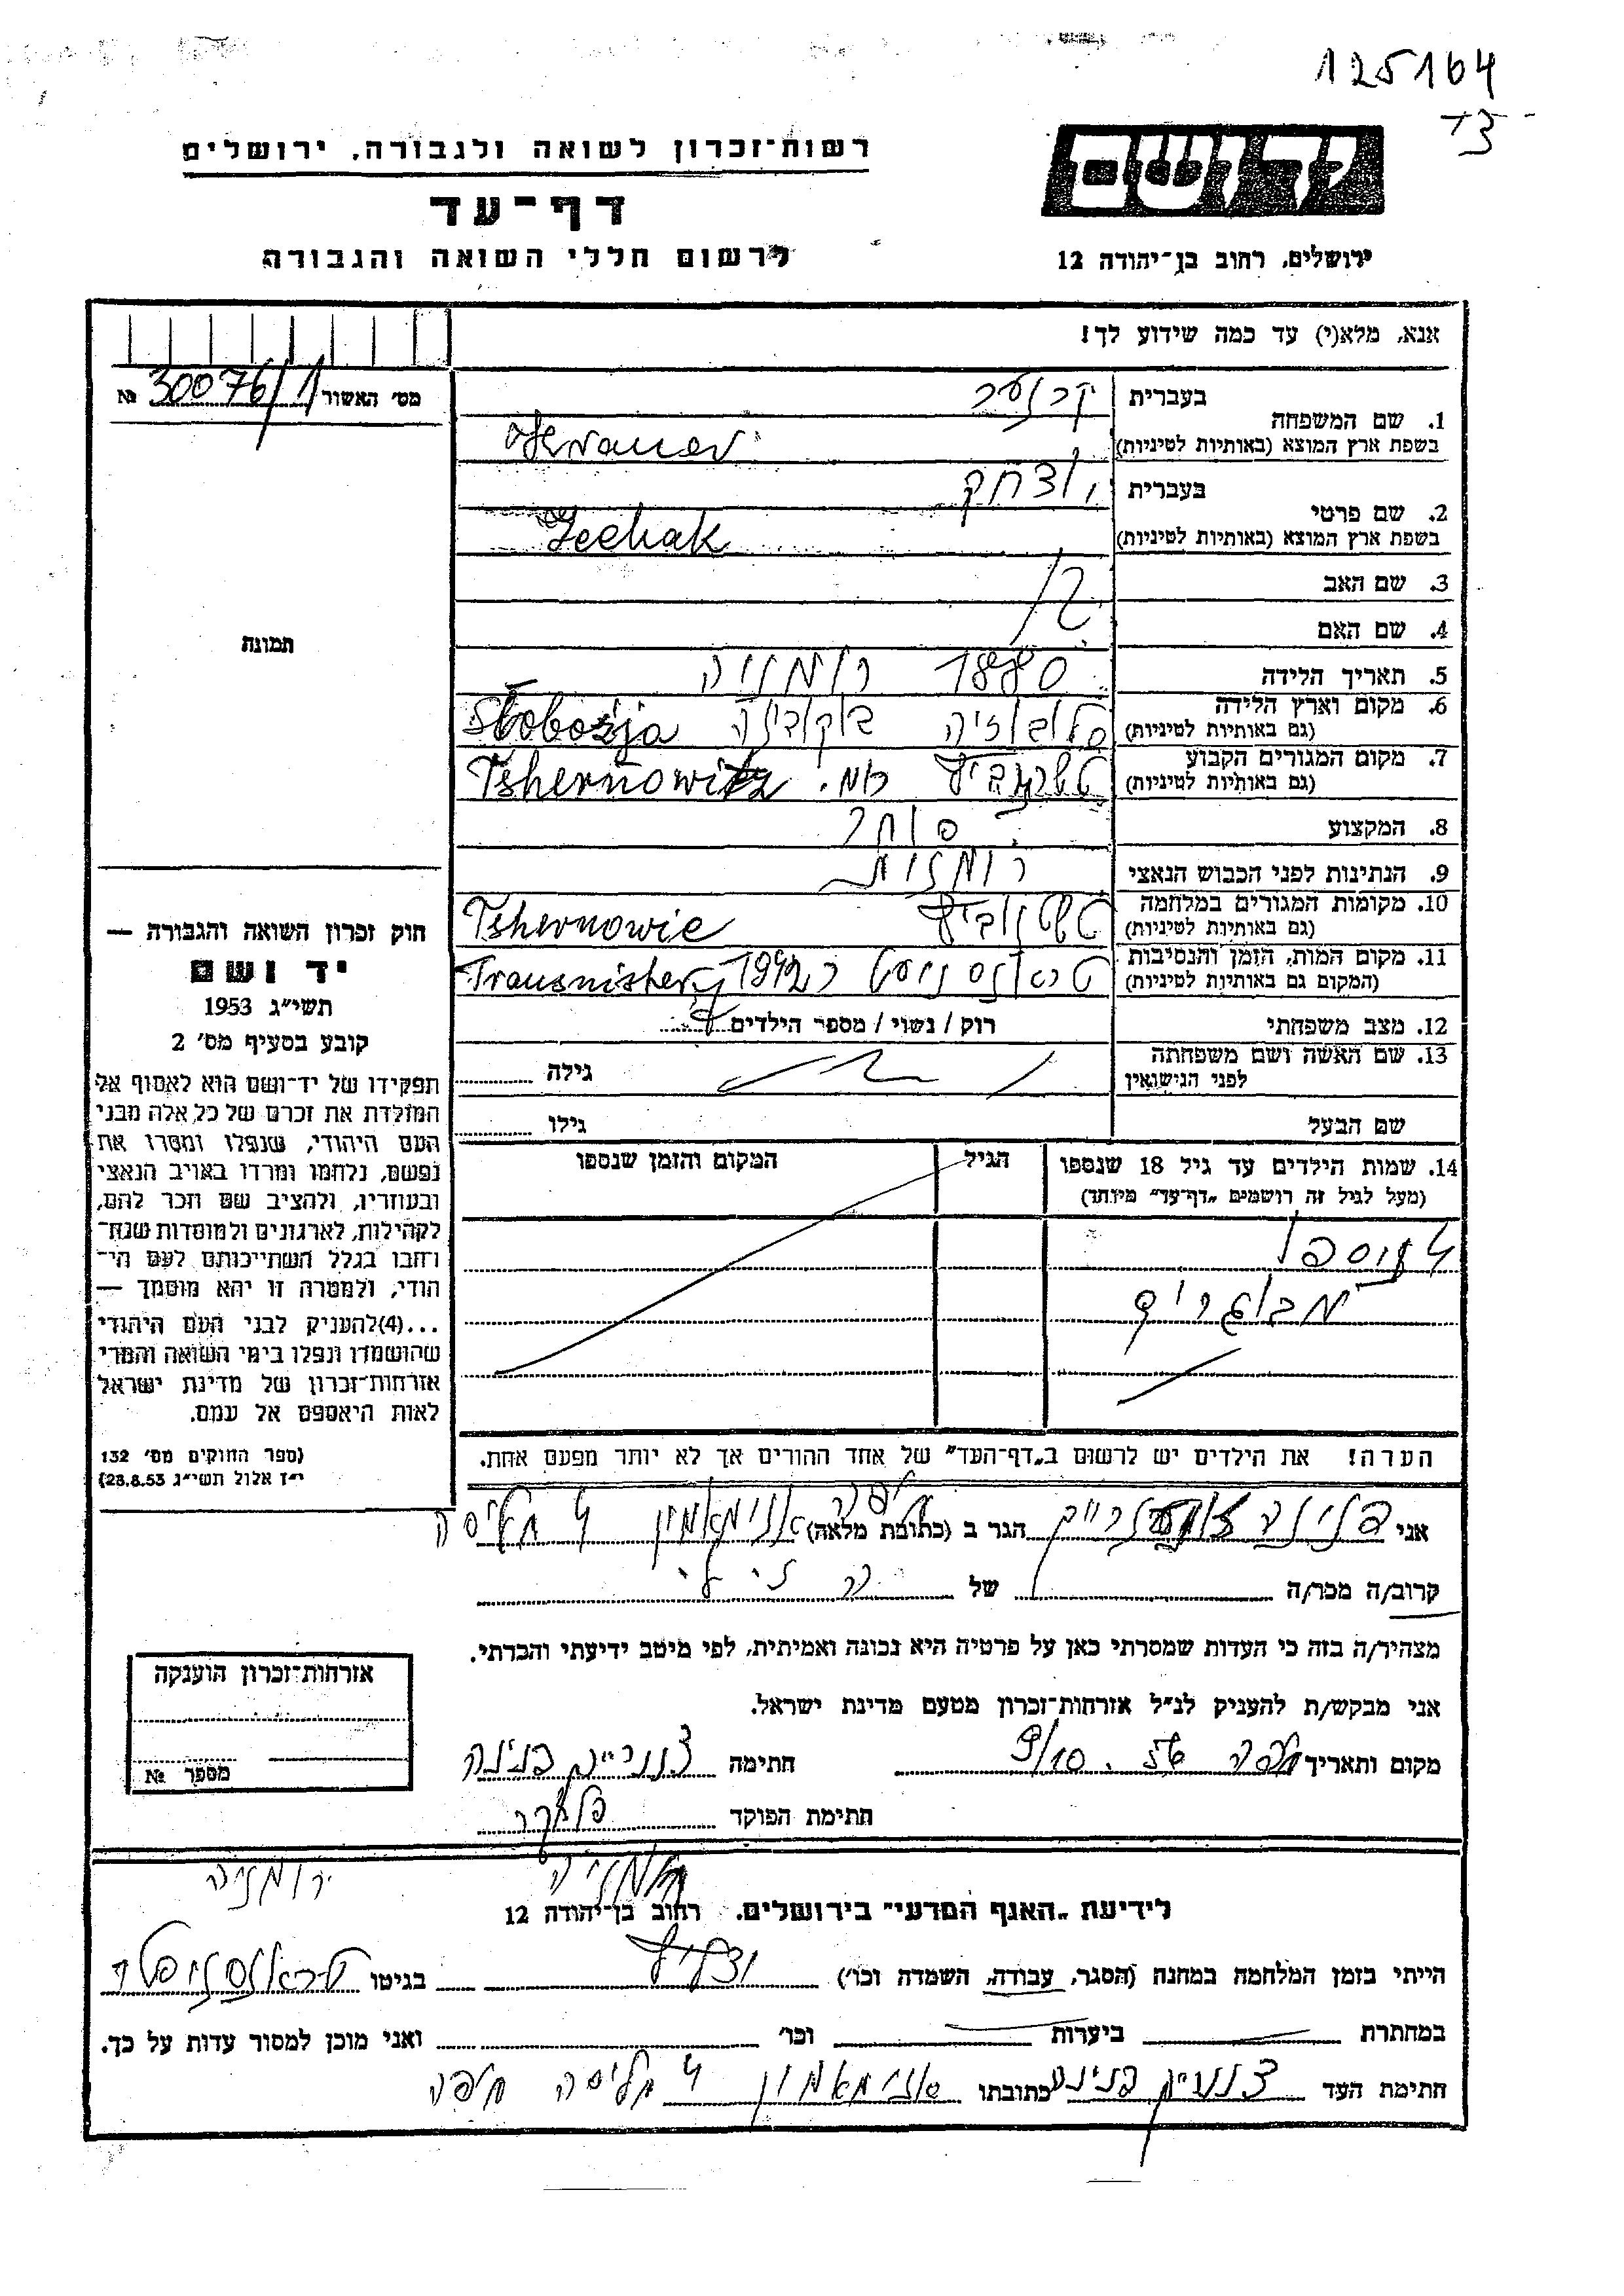 125164
רשות־זכרון לשואה ולגבורה, ירושלים
דף־עד
לרשום חללי השואה והגבורה
ידושם
ירושלים, רחוב בן־יהודה 12
אנא, מלא(י) עד כמה שידוע לך!
מס׳ האשור 30076/1 №
1. שם המשפחה
בעברית
בשפת ארץ המוצא (באותיות לטיניות)
2. שם פרטי
בעברית יצחק
בשפת ארץ המוצא (באותיות לטיניות)
3. שם האב
4. שם האם
תמונה
5. תאריך הלידה 1880 רומניה
6. מקום וארץ הלידה
(גם באותיות לטיניות) סלובוזיה בוקובינה Slobozia
7. מקום המגורים הקבוע
(גם באותיות לטיניות) רומ. Tshernowitz
8. המקצוע סוחר
9. הנתינות לפני הכבוש הנאצי רומנית
10. מקומות המגורים במלחמה
(גם באותיות לטיניות) Tshernowic
11. מקום המות, הזמן והנסיבות
(המקום גם באותיות לטיניות) 1942
12. מצב משפחתי רוק / נשוי / מספר הילדים
13. שם האשה ושם משפחתה
לפני הנישואין
גילה
שם הבעל
גילו
14. שמות הילדים עד גיל 18 שנספו
(מעל לגיל זה רושמים „דף־עד״ מיוחד)
הגיל
המקום והזמן שנספו
4 נוספו
מבוגרים
הערה! את הילדים יש לרשום ב„דף־העד״ של אחד ההורים אך לא יותר מפעם אחת.
חוק זכרון השואה והגבורה —
יד ושם
תשי״ג 1953
קובע בסעיף מס׳ 2
תפקידו של יד־ושם הוא לאסוף אל
המולדת את זכרם של כל אלה מבני
העם היהודי, שנפלו ומסרו את
נפשם, נלחמו ומרדו באויב הנאצי
ובעוזריו, ולהציב שם וזכר להם,
לקהילות, לארגונים ולמוסדות שנח־
רחבו בגלל השתייכותם לעם הי־
הודי, ולמטרה זו יהא מוסמך —
...(4)להעניק לבני העם היהודי
שהושמדו ונפלו בימי השואה והמרי
אזרחות־זכרון של מדינת ישראל
לאות היאספם אל עמם.
(ספר החוקים מס׳ 132
י״ז אלול תשי״ג 28.8.53)
אני פנינה הגר ב (כתובת מלאה) חיפה אנימאמין 4 חליסה
קרוב/ה מכר/ה של
מצהיר/ה בזה כי העדות שמסרתי כאן על פרטיה היא נכונה ואמיתית, לפי מיטב ידיעתי והכרתי.
אני מבקש/ת להעניק לנ״ל אזרחות־זכרון מטעם מדינת ישראל.
מקום ותאריך חיפה 56. 9/10 חתימה פנינה
חתימת הפוקד
אזרחות־זכרון הוענקה
מספר №
רומניה
לידיעת „האגף המדעי״ בירושלים. רחוב בן־יהודה 12
הייתי בזמן המלחמה במחנה (הסגר, עבודה, השמדה וכו׳) בגיטו
במחתרת ביערות וכו׳ ואני מוכן למסור עדות על כך.
חתימת העד פנינה כתובתו אנימאמין 4 חליסה חיפה